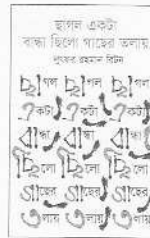 ছাগল একটা
বান্ধা ছিলো গাছের তলায়
লুৎফর রহমান রিটন
ছাগল ছাগল ছাগল
একটা একটা একটা
বান্ধা বান্ধা বান্ধা
ছিলো ছিলো ছিলো
গাছের গাছের গাছের
তলায় তলায় তলায়